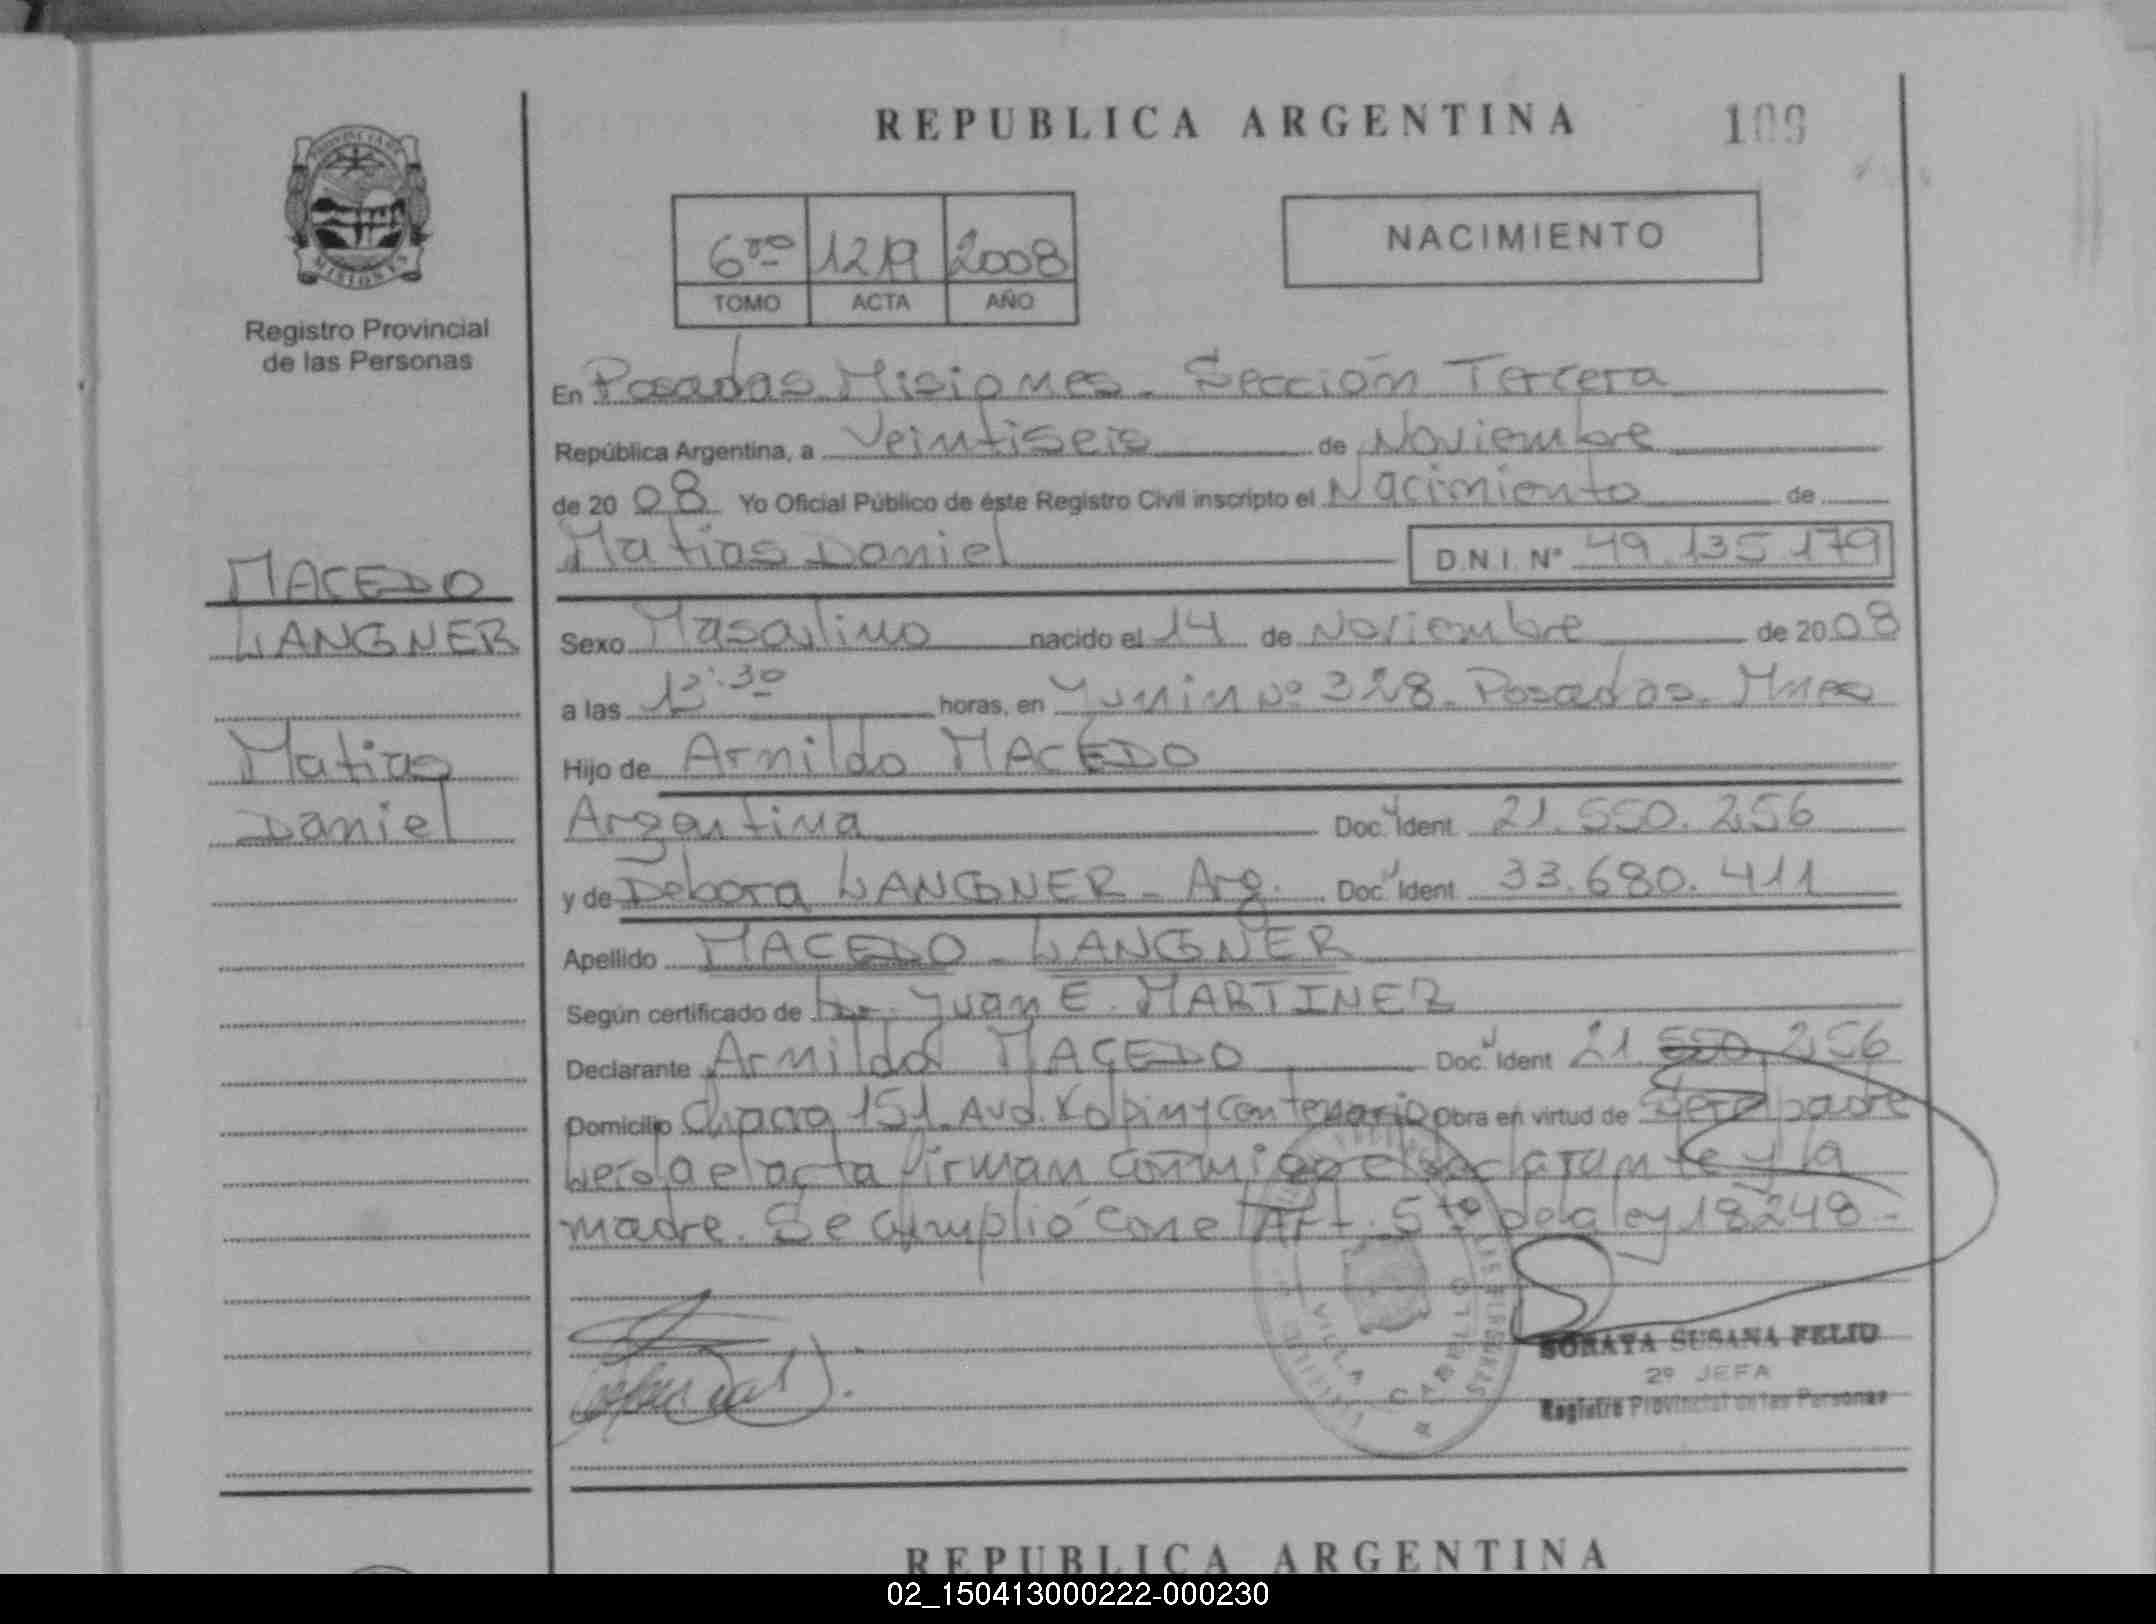 REPUBLICA ARGENTINA
109
PROVINCIA DE
MISIONES
Registro Provincial
de las Personas
6to 1219 2008
TOMO ACTA AÑO
NACIMIENTO
En Posadas. Misiones. Sección Tercera
República Argentina, a Veintiseis de Noviembre
de 20 08 Yo Oficial Público de éste Registro Civil inscripto el Nacimiento de
Matias Daniel D.N.I. Nº 49.135.179
MACEDO
WANGNER
Matias
Daniel
Sexo Masculino nacido el 14 de Noviembre de 20 08
a las 12:30 horas, en Yunin Nº 328. Posadas. Mnes
Hijo de Arnildo MACEDO
Argentina Doc. Ident 21.550.256
y de Debora WANGNER - Arg. Doc. Ident 33.680.411
Apellido MACEDO - WANGNER
Según certificado de Dr. Juan E. MARTINEZ
Declarante Arnildo MACEDO Doc. Ident 21.550.256
Domicilio Chacra 151. Avd. Kolpin y Centenario Obra en virtud de ser el padre
Leida el acta firman conmigo el declarante y la
madre. Se cumplió con el Art. 5to de la ley 18248-
VILLA CABELLO
SORAYA SUSANA FELIU
2º JEFA
Registro Provincial de las Personas
REPUBLICA ARGENTINA
02_150413000222-000230